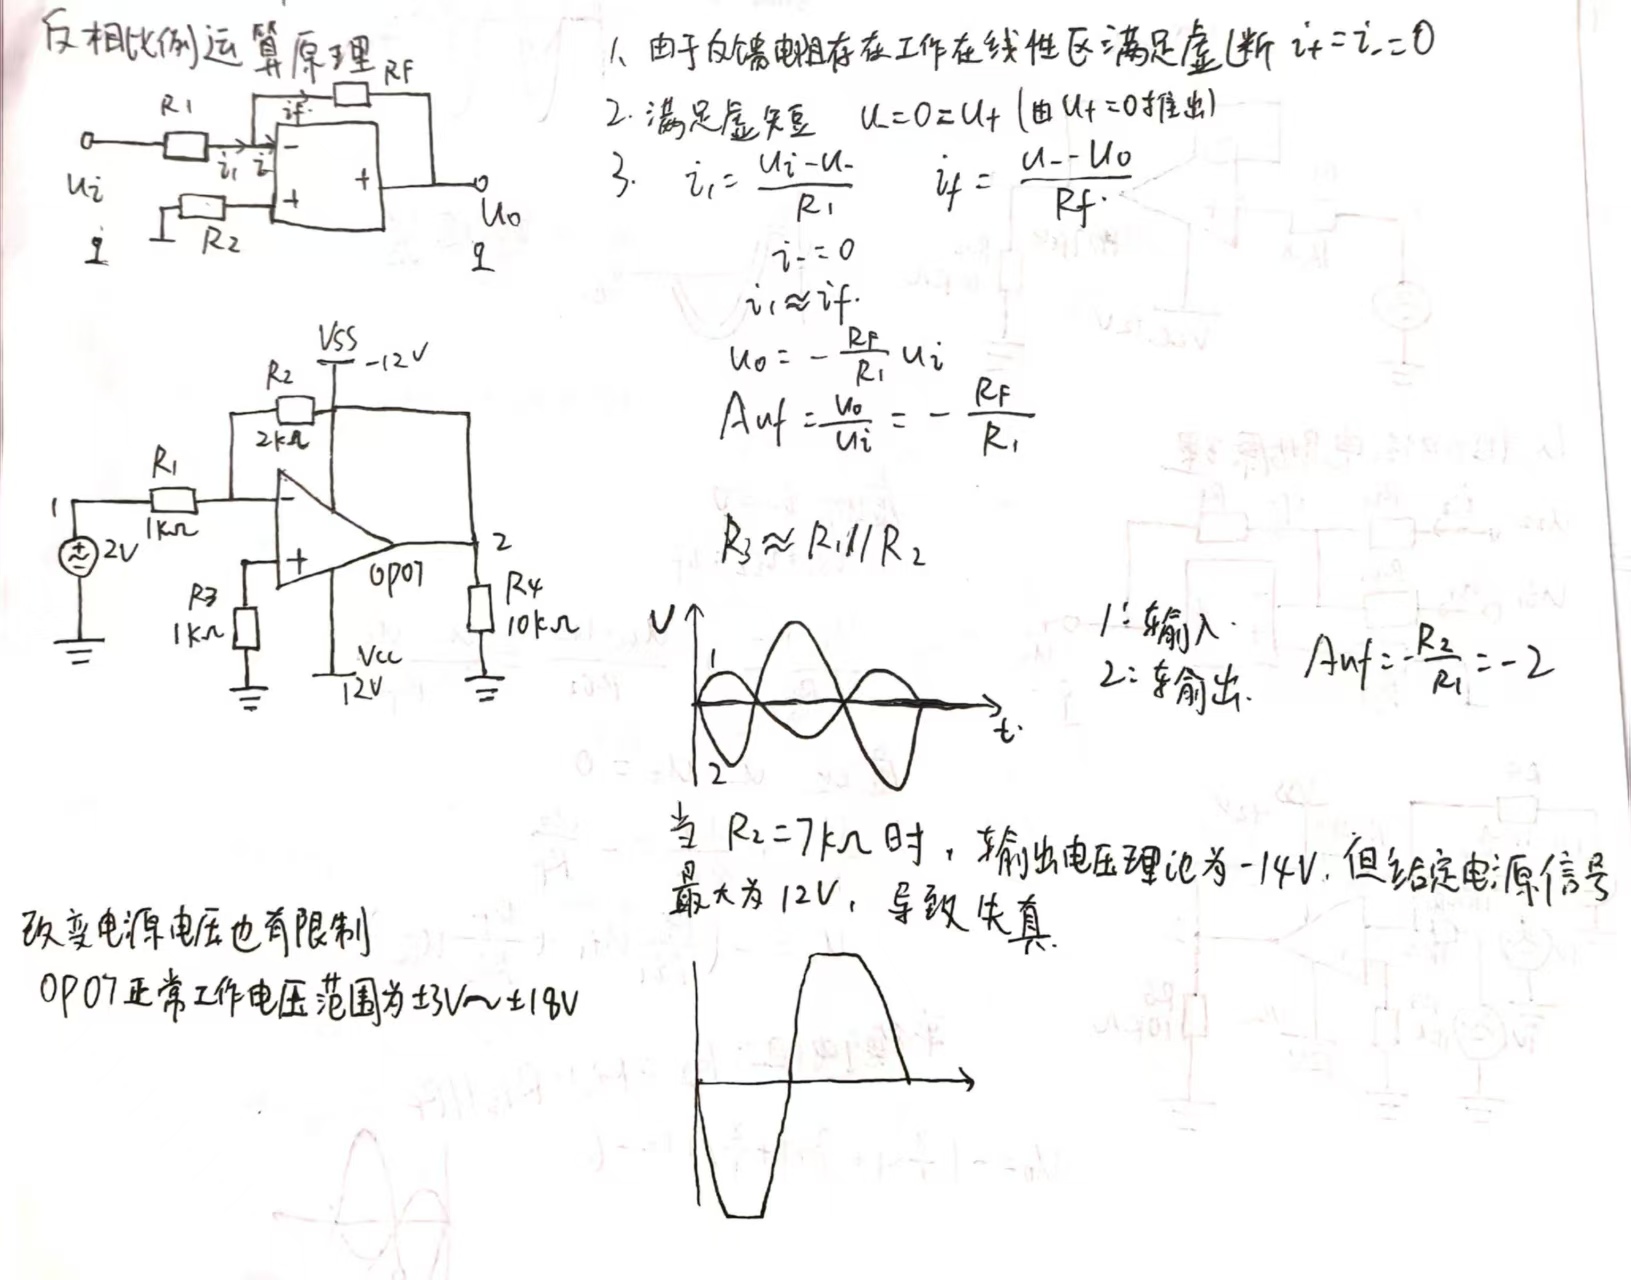 反相比例运算原理
RF
R1
if
i1
i-
-
+
+
R2
ui
uo
1、由于反馈电阻存在工作在线性区满足虚断 i+=i-=0
2.满足虚短 u-=0=u+ (由u+=0推出)
3. i1=(ui-u-)/R1 if=(u--uo)/Rf.
i-=0
i1≈if.
uo=-RF/R1 ui
Auf=uo/ui=-RF/R1
R3≈R1//R2
VSS
-12V
R2
2kΩ
R1
1kΩ
1
2V
-
+
OP07
2
R3
1kΩ
R4
10kΩ
Vcc
12V
V
1
2
t.
1:输入.
2:输出.
Auf=-R2/R1=-2
当 R2=7kΩ时，输出电压理论为-14V,但给定电源信号
最大为12V，导致失真.
改变电源电压也有限制
OP07正常工作电压范围为±3V~±18V